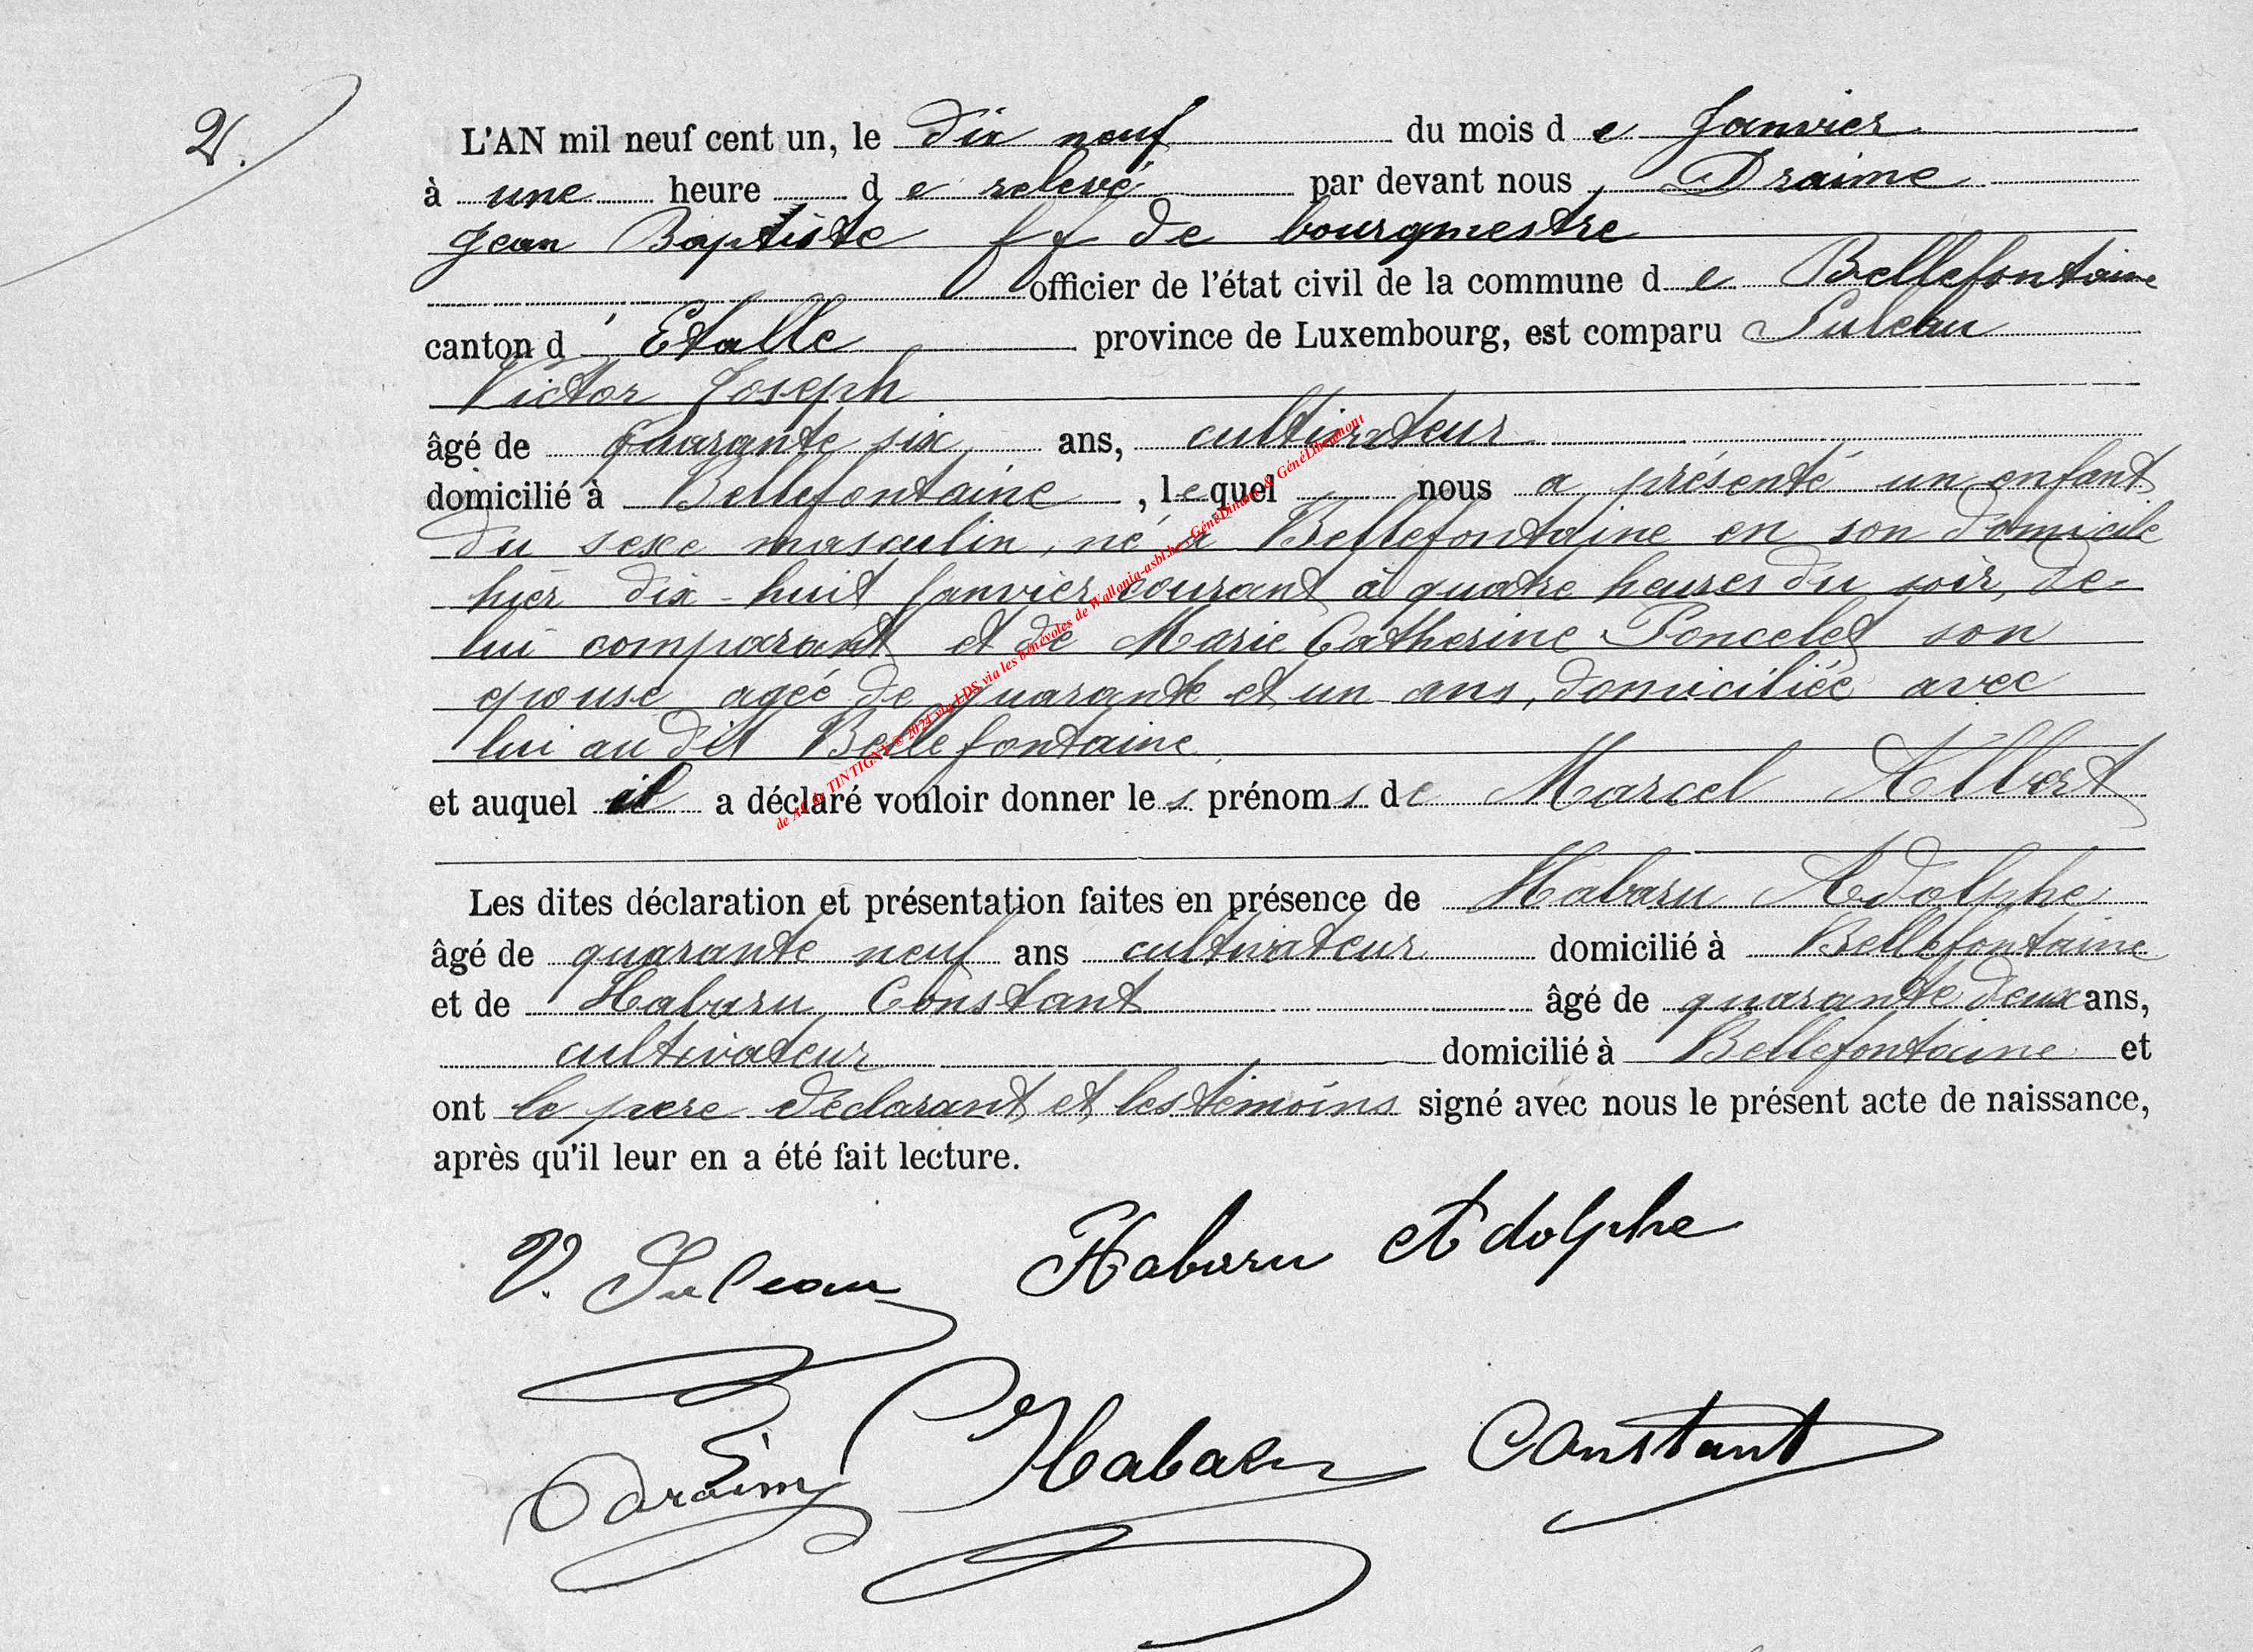 2.
L'AN mil neuf cent un, le dix neuf du mois de Janvier
à une heure de relevé par devant nous, Draime
Jean Baptiste ff de bourgmestre
officier de l'état civil de la commune de Bellefontaine
canton d'Etalle province de Luxembourg, est comparu Suleau
Victor Joseph
âgé de quarante six ans, cultivateur
domicilié à Bellefontaine, lequel nous a présenté un enfant
du sexe masculin, né à Bellefontaine en son domicile
hier dix-huit Janvier courant à quatre heures du soir, de
lui comparant et de Marie Catherine Poncelet son
epouse agée de quarante et un ans, domiciliée avec
lui au dit Bellefontaine
et auquel il a déclaré vouloir donner les prénoms de Marcel Albert
Les dites déclaration et présentation faites en présence de Habaru Adolphe
âgé de quarante neuf ans cultivateur domicilié à Bellefontaine
et de Habaru Constant âgé de quarante deux ans,
cultivateur domicilié à Bellefontaine et
ont le père déclarant et les témoins signé avec nous le présent acte de naissance,
après qu'il leur en a été fait lecture.
V. Suleau Habaru Adolphe
Draime Habaru Constant
TINTIGNY © 2024 via LDS via les bénévoles de Wallonia-asbl.be - GénéDinant & GénéLibramont